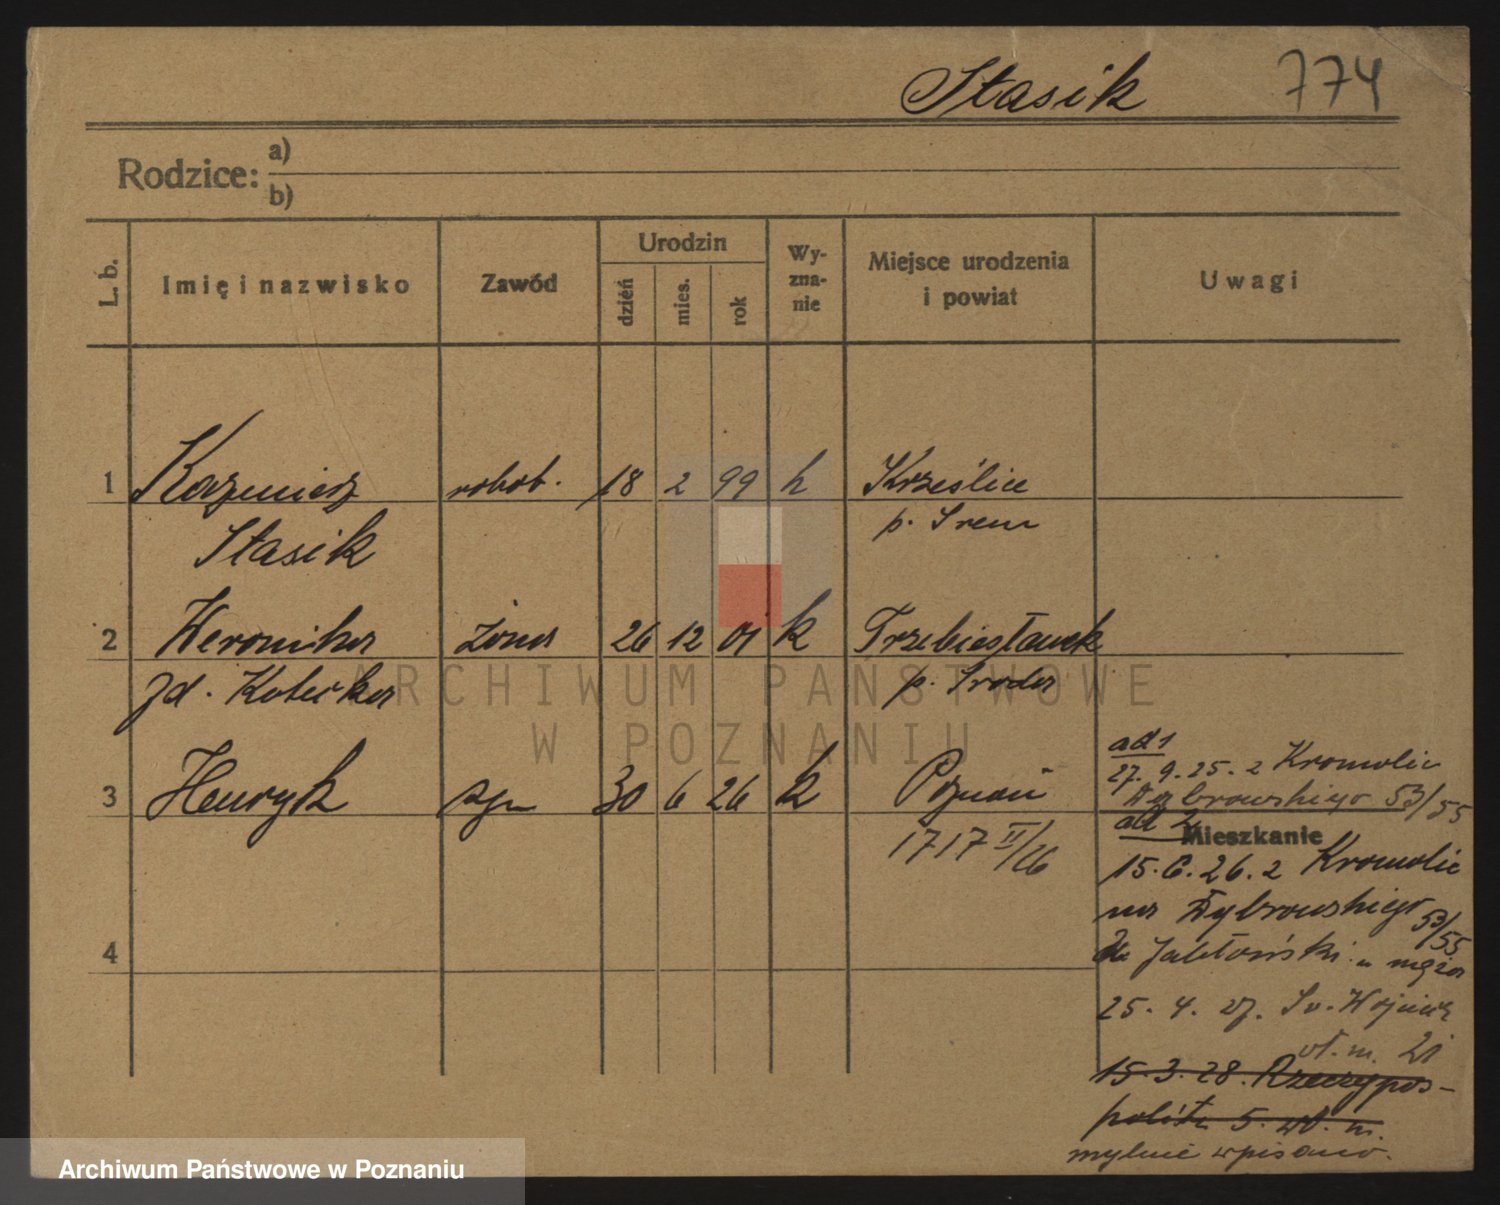 Stasik 774
Rodzice: a)
b)
L. b. Imię i nazwisko Zawód Urodzin dzień mies. rok Wy-zna-nie Miejsce urodzenia i powiat Uwagi
1 Kazimierz robot. 18 2 99 k Krześlice
Stasik p. Srem
2 Weronika żona 26 12 01 k Trzebiesławk
zd. p. Sroda
3 Henryk syn 30 6 26 k Poznań
1717 II/26
4
ad 1
27. 9. 25. z Kromolic
Dąbrowskiego 53/55
ad 2
Mieszkanie
15. 6. 26. z Kromolic
na Dąbrowskiego 53/55
Jabłoński u męża
25. 4. 27. Św. Wojciech
wł. m. 21
15. 3. 28. Rzeczypos-
polit. 5. wł. m.
mylnie wpisano.
ARCHIWUM PAŃSTWOWE
W POZNANIU
Archiwum Państwowe w Poznaniu